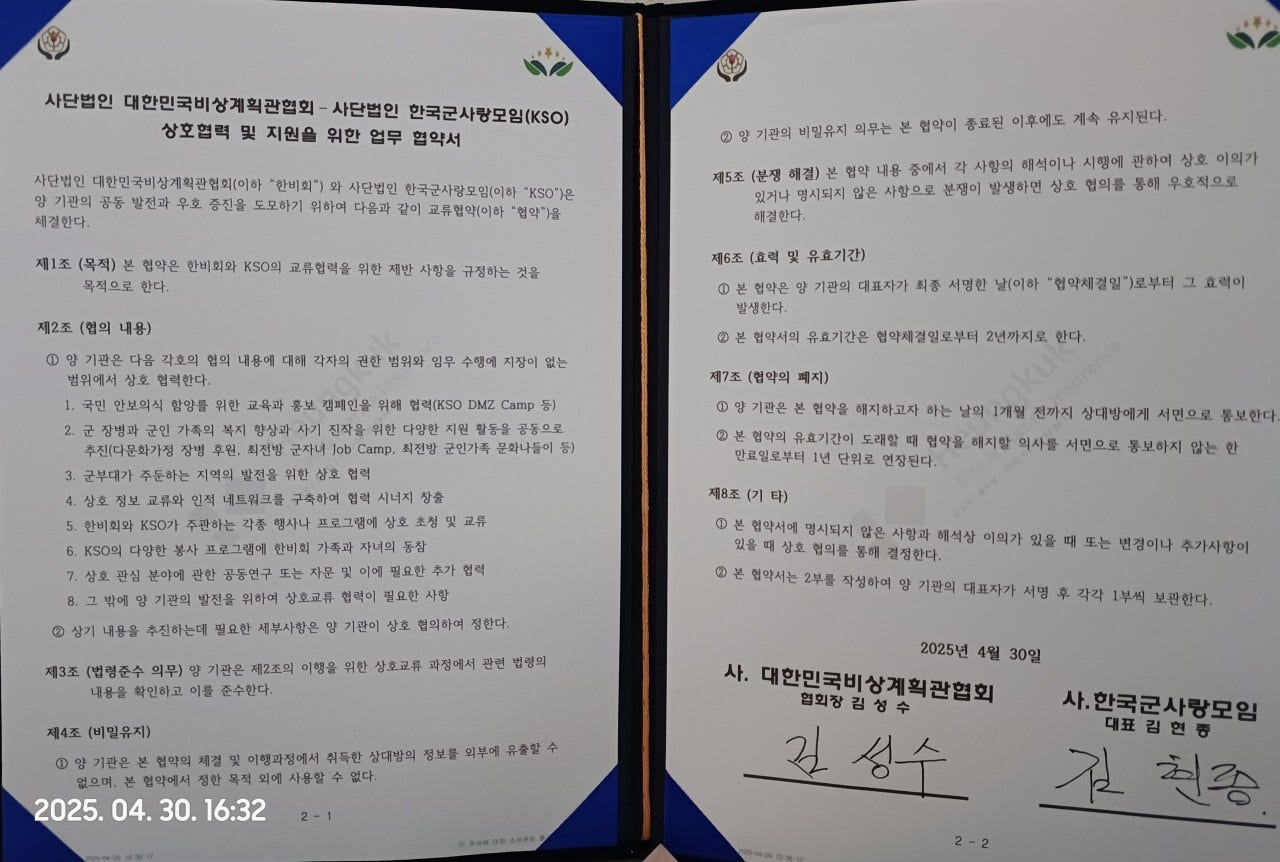 사단법인 대한민국비상계획관협회 – 사단법인 한국군사랑모임(KSO)
상호협력 및 지원을 위한 업무 협약서
사단법인 대한민국비상계획관협회(이하 “한비회”) 와 사단법인 한국군사랑모임(이하 “KSO”)은
양 기관의 공동 발전과 우호 증진을 도모하기 위하여 다음과 같이 교류협약(이하 “협약”)을
체결한다.
제1조 (목적) 본 협약은 한비회와 KSO의 교류협력을 위한 제반 사항을 규정하는 것을
목적으로 한다.
제2조 (협의 내용)
① 양 기관은 다음 각호의 협의 내용에 대해 각자의 권한 범위와 임무 수행에 지장이 없는
범위에서 상호 협력한다.
1. 국민 안보의식 함양를 위한 교육과 홍보 캠페인을 위해 협력(KSO DMZ Camp 등)
2. 군 장병과 군인 가족의 복지 향상과 사기 진작을 위한 다양한 지원 활동을 공동으로
추진(다문화가정 장병 후원, 최전방 군자녀 Job Camp, 최전방 군인가족 문화나들이 등)
3. 군부대가 주둔하는 지역의 발전을 위한 상호 협력
4. 상호 정보 교류와 인적 네트워크를 구축하여 협력 시너지 창출
5. 한비회와 KSO가 주관하는 각종 행사나 프로그램에 상호 초청 및 교류
6. KSO의 다양한 봉사 프로그램에 한비회 가족과 자녀의 동참
7. 상호 관심 분야에 관한 공동연구 또는 자문 및 이에 필요한 추가 협력
8. 그 밖에 양 기관의 발전을 위하여 상호교류 협력이 필요한 사항
② 상기 내용을 추진하는데 필요한 세부사항은 양 기관이 상호 협의하여 정한다.
제3조 (법령준수 의무) 양 기관은 제2조의 이행을 위한 상호교류 과정에서 관련 법령의
내용을 확인하고 이를 준수한다.
제4조 (비밀유지)
① 양 기관은 본 협약의 체결 및 이행과정에서 취득한 상대방의 정보를 외부에 유출할 수
없으며, 본 협약에서 정한 목적 외에 사용할 수 없다.
2025. 04. 30. 16:32
2 - 1
② 양 기관의 비밀유지 의무는 본 협약이 종료된 이후에도 계속 유지된다.
제5조 (분쟁 해결) 본 협약 내용 중에서 각 사항의 해석이나 시행에 관하여 상호 이의가
있거나 명시되지 않은 사항으로 분쟁이 발생하면 상호 협의를 통해 우호적으로
해결한다.
제6조 (효력 및 유효기간)
① 본 협약은 양 기관의 대표자가 최종 서명한 날(이하 “협약체결일”)로부터 그 효력이
발생한다.
② 본 협약서의 유효기간은 협약체결일로부터 2년까지로 한다.
제7조 (협약의 폐지)
① 양 기관은 본 협약을 해지하고자 하는 날의 1개월 전까지 상대방에게 서면으로 통보한다.
② 본 협약의 유효기간이 도래할 때 협약을 해지할 의사를 서면으로 통보하지 않는 한
만료일로부터 1년 단위로 연장된다.
제8조 (기 타)
① 본 협약서에 명시되지 않은 사항과 해석상 이의가 있을 때 또는 변경이나 추가사항이
있을 때 상호 협의를 통해 결정한다.
② 본 협약서는 2부를 작성하여 양 기관의 대표자가 서명 후 각각 1부씩 보관한다.
2025년 4월 30일
사. 대한민국비상계획관협회
협회장 김 성 수
김 성수
사.한국군사랑모임
대표 김 현 종
김 현종.
2 - 2